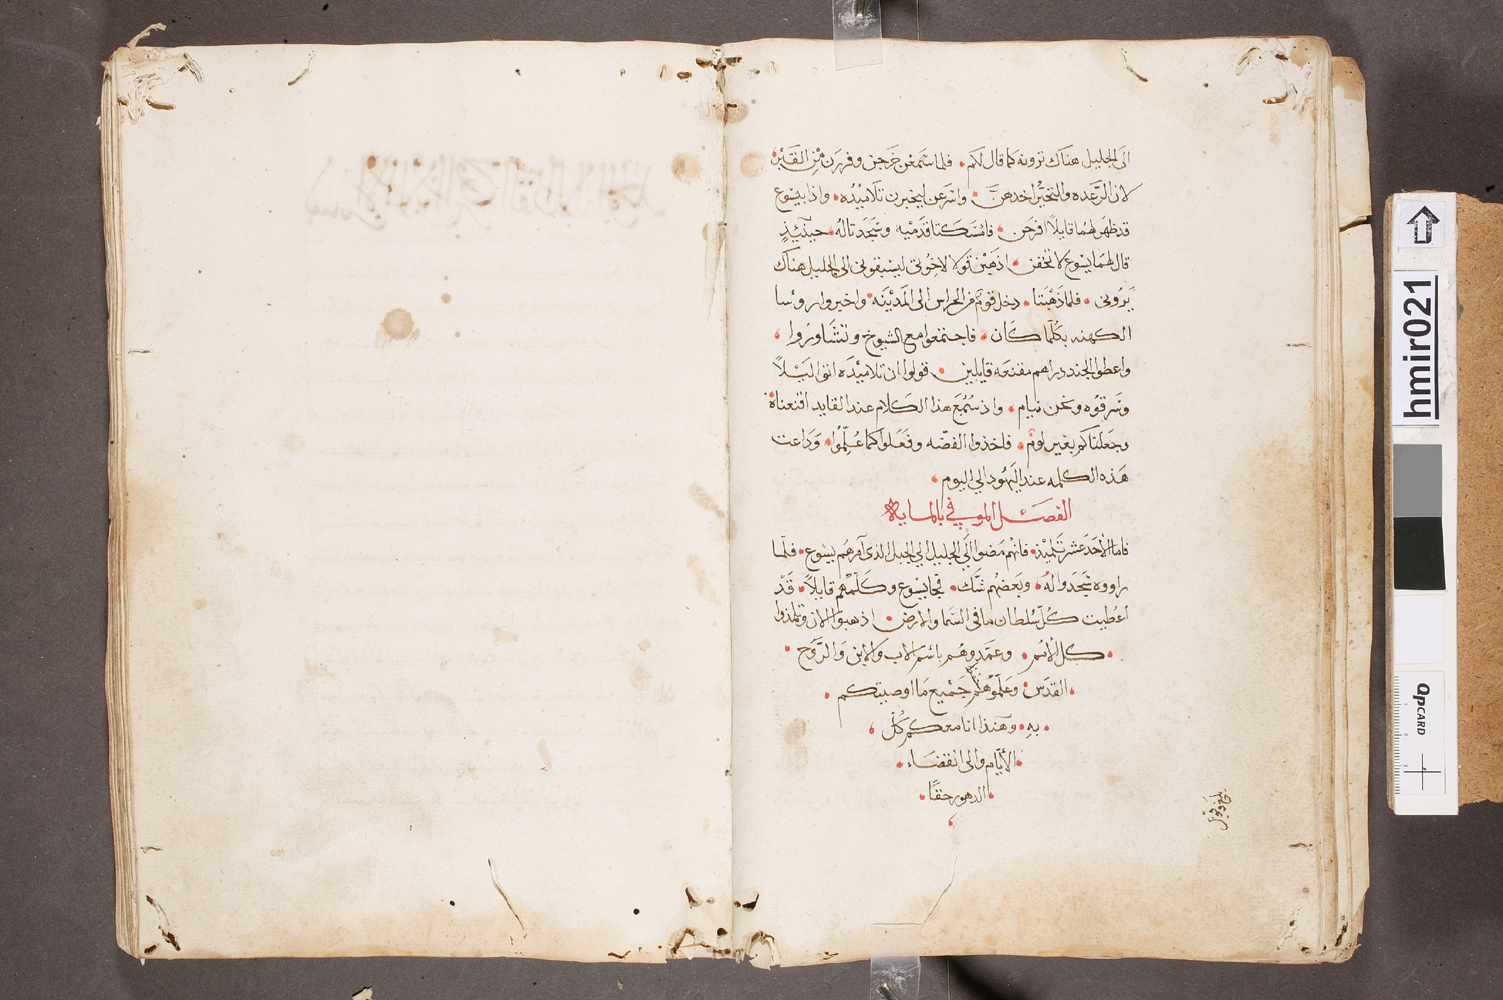 الى الجليل هناك ترونه كما قال لكم. فلما سمعن خرجن وفررن من القبر
لان الرعده والتحيّر اخدهنّ. واسرعن ليخبرن تلاميذه. واذا يسوع
قد ظهر لهما قايلاً افرحن. فامسكتا قدميه وسجدتا له. حينيذٍ
قال لهما يسوع لا تخفن. اذهبن قولا لاخوتي ليسبقوني الى الجليل هناك
يروني. فلما ذهبتا. دخل قوم من الحراس الى المدينه. واخبروا روسا
الكهنه بكلما كان. فاجتمعوا مع الشيوخ وتشاوروا
واعطوا الجند دراهم مقنعه قايلين. قولوا ان تلاميذه اتوا ليلاً
وسرقوه ونحن نيام. واذ سُمع هذا الكلام عند القايد اقنعناه
وجعلناكم بغير لوم. فاخذوا الفضّه وفعلوا كما عُلّموا. وذاعت
هذه الكلمه عند اليهود الي اليوم
الفصل الموفي بالمايه
فاما الاحد عشر تلميذ. فانهم مضوا الي الجليل الي الجبل الدى امرهم يسوع. فلما
راووه سجدوا له. وبعضهم شك. فجا يسوع وكلمهم قايلاً. قد
اعطيت كل سلطان ما في السما والارض. اذهبوا الان وتلمذوا
كل الامم. وعمّدوهم باسم الاب والابن والرّوح
القدس. وعلّموهم جميع ما اوصيتكم
به. وهنذا انا معكم كل
الأيّام والى انقضاء
الدهور حقًا
hmir021
QPCARD